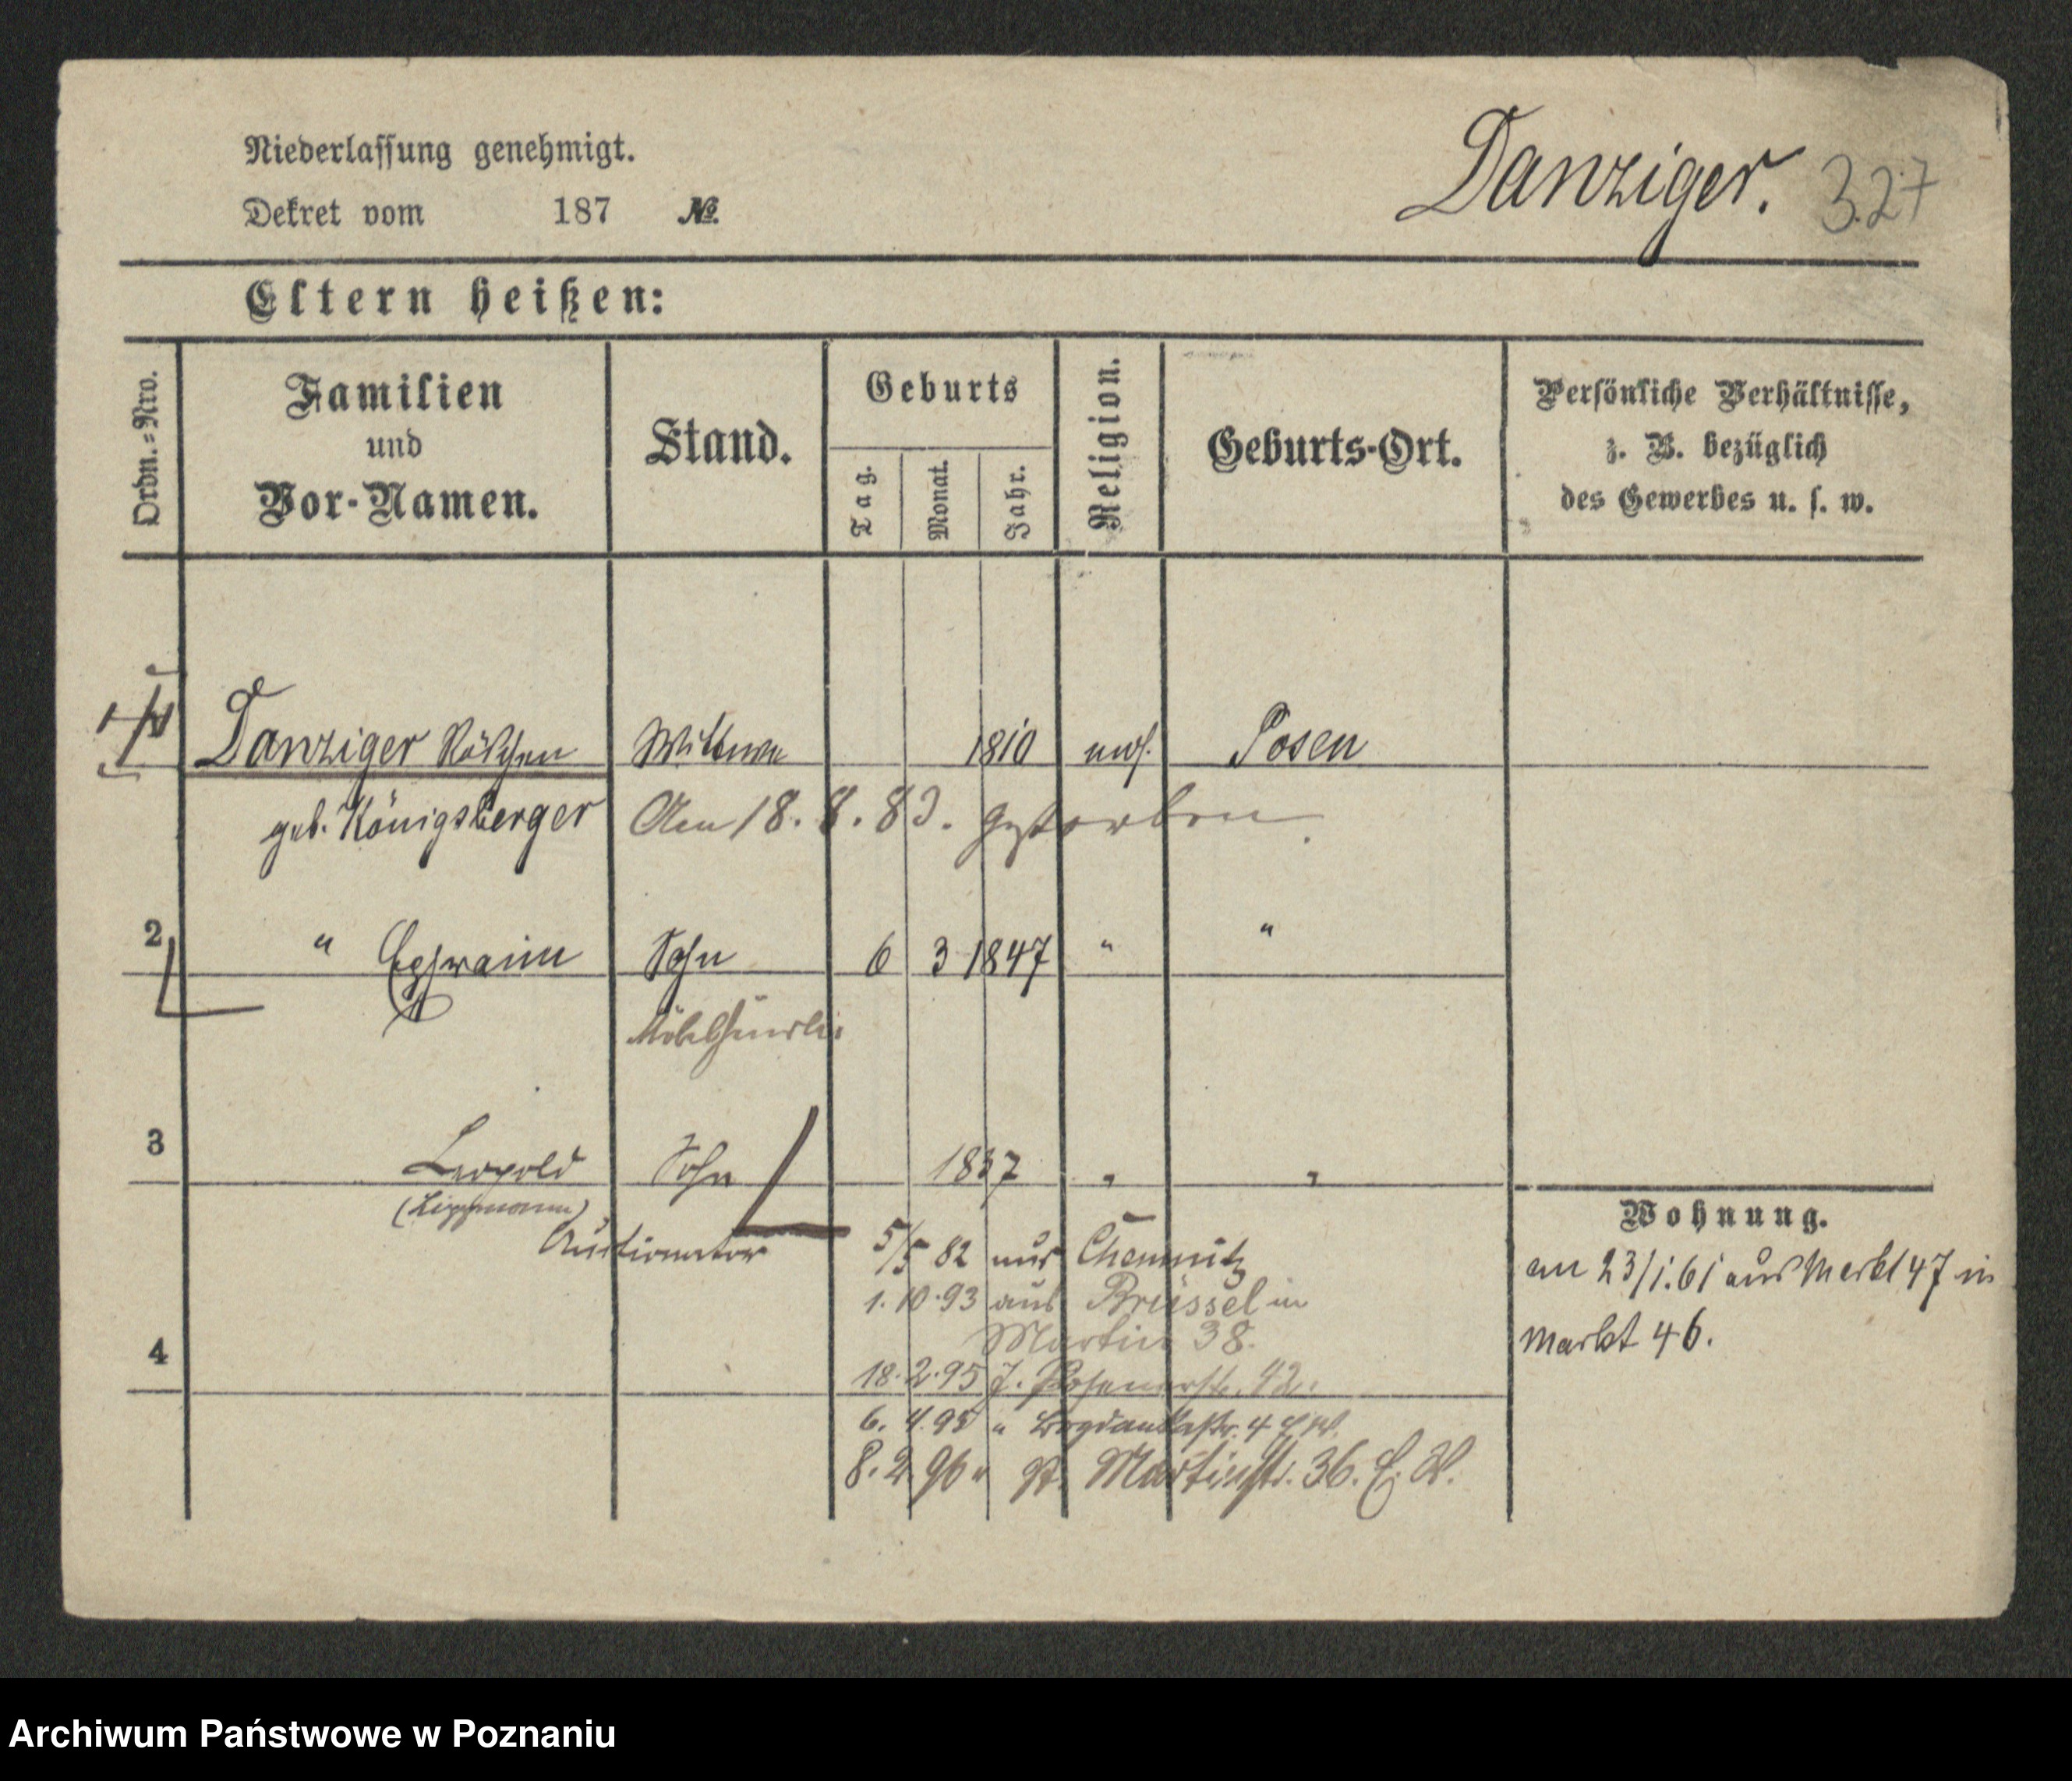 Niederlassung genehmigt.
Danziger. 327
Dekret vom 187 №
Eltern heißen:
Ordn.=Nro.
Familien
und
Vor-Namen.
Stand.
Geburts
Tag.
Monat.
Jahr.
Religion.
Geburts-Ort.
Persönliche Verhältnisse,
z. B. bezüglich
des Gewerbes u. s. w.
Danziger Röschen Wittwe 1810 mos. Posen
geb. Königsberger Am 18. 8. 83. gestorben.
2 " Ephraim Sohn 6 3 1847 " "
Möbelhändler
3 Leopold Sohn 1837 " "
(Lippmann)
Auctionator
5/5 82 aus Chemnitz
1. 10. 93 aus Brüssel in
Martin 38.
4
18. 2. 95 J. Posenerstr. 42.
6. 4. 95 " Bogdankastr. 4
8. 2 96 " St. Martinstr. 36. E. W.
Wohnung.
am 23/1. 61 aus Markt 47 in
Markt 46.
Archiwum Państwowe w Poznaniu